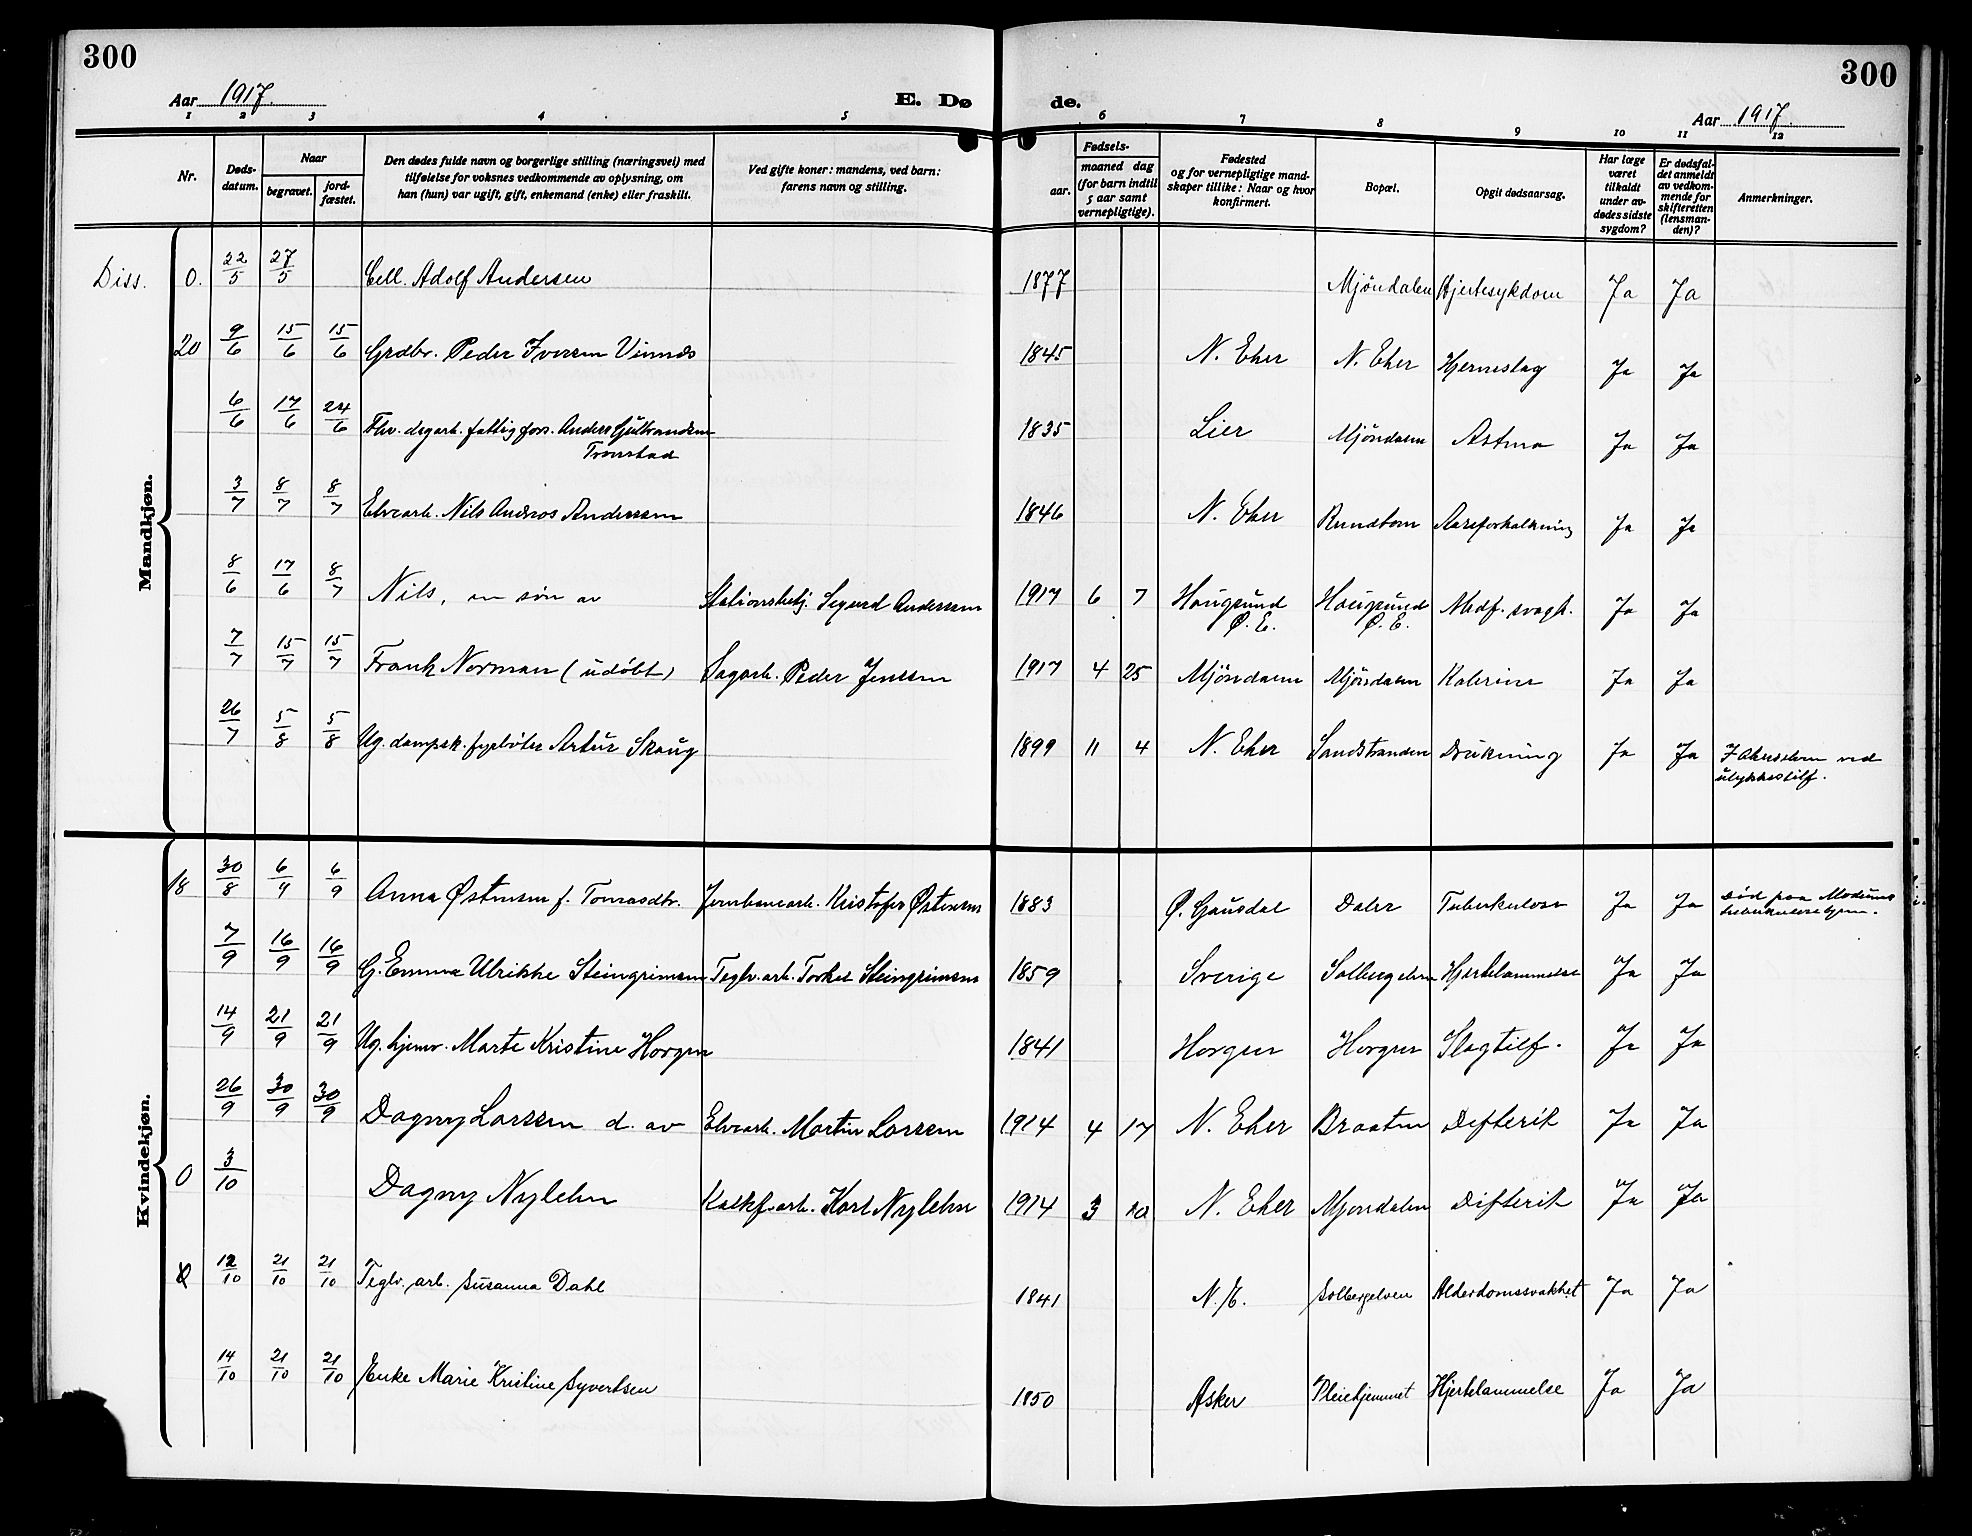 300
300
Aar 1917.
E. Dø
de.
Aar 1917.
1 2 3 4 5 6 7 8 9 10 11 12
Nr.
Døds-
datum.
Naar
begravet.
jord-
fæstet.
Den dødes fulde navn og borgerlige stilling (næringsvei) med
tilføielse for voksnes vedkommende av oplysning, om
han (hun) var ugift, gift, enkemand (enke) eller fraskilt.
Ved gifte koner: mandens, ved barn:
farens navn og stilling.
Fødsels-
aar.
maaned dag
(for barn indtil
5 aar samt
vernepligtige).
Fødested
og for vernepligtige mand-
skaper tillike: Naar og hvor
konfirmert.
Bopæl.
Opgit dødsaarsag.
Har læge
været
tilkaldt
under av-
dødes sidste
sygdom?
Er dødsfal-
det anmeldt
av vedkom-
mende for
skifteretten
(lensman-
den)?
Anmerkninger.
Mandkjøn.
Diss. 0. 22/5 27/5 Cell. Adolf Andersen 1877 Mjöndalen Hjertesykdom Ja Ja
20 9/6 15/6 15/6 Grdbr. Peder Iversen Vinnes 1845 N. Eker N. Eker Hjerneslag Ja Ja
6/6 17/6 24/6 Fhv. dagarb. fattigfors. Anders Gulbrandsen
Tronstad 1835 Lier Mjöndalen Astma Ja Ja
3/7 8/7 8/7 Elvearb. Nils Andreas Anderssen 1846 N. Eker Rundtom Aareforkalkning Ja Ja
8/6 17/6 8/7 Nils, en søn av Stationsbetj. Sigurd Anderssen 1917 6 7 Hougsund
Ø. E. Hougsund
Ø. E. Medf. svagh. Ja Ja
7/7 15/7 15/7 Frank Norman (udøbt) Sagarb. Peder Jenssen 1917 4 25 Mjöndalen Mjöndalen Kolerine Ja Ja
26/7 5/8 5/8 Ug. dampsk. fyrbøter Artur Skaug 1899 11 4 N. Eker Sandstranden Drukning Ja Ja I Akerselven ved
ulykkestilf.
Kvindekjøn.
18 30/8 6/9 6/9 Anna Østensen f. Tomasdtr. Jernbanearb. Kristofer Østensen 1883 Ø. Gausdal Daler Tuberkulose Ja Ja Död paa Modums
tuberkulosehjem.
7/9 16/9 16/9 G. Emma Ulrikke Steingrimsen Teglv. arb. Torkel Steingrimsen 1859 Sverige Solbergelven Hjertelammelse Ja Ja
14/9 21/9 21/9 Ug. hjemv. Marte Kristine Horgen 1841 Horgen Horgen Slagtilf. Ja Ja
26/9 30/9 30/9 Dagny Larssen d. av Elvearb. Martin Larssen 1914 4 17 N. Eker Braaten Difterit Ja Ja
0 3/10 Dagny Nylehn Kalkf. arb. Karl Nylehn 1914 3 10 N. Eker Mjöndalen Difterit Ja Ja
12/10 21/10 21/10 Teglv. arb. Susanna Dahl 1841 N. E. Solbergelven Alderdomssvakhet Ja Ja
14/10 21/10 21/10 Enke Marie Kristine Syvertsen 1850 Asker Pleiehjemmet Hjertelammelse Ja Ja